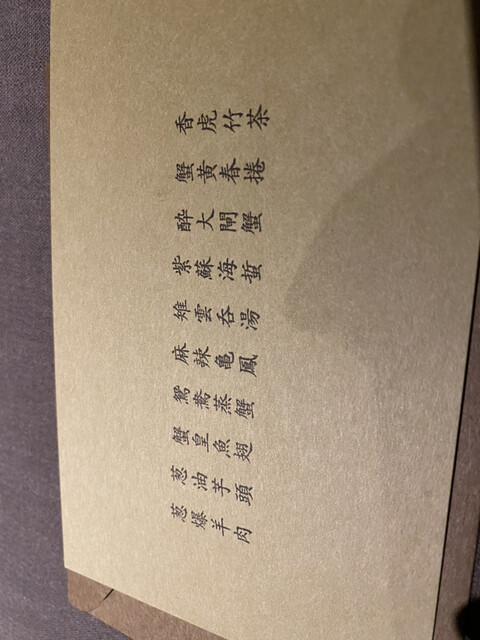 香虎竹茶
蟹黄春捲
酔大閘蟹
紫蘇海蜇
雉雲呑湯
麻辣亀鳳
鴛鴦蒸蟹
蟹皇魚翅
葱油芋頭
葱爆羊肉